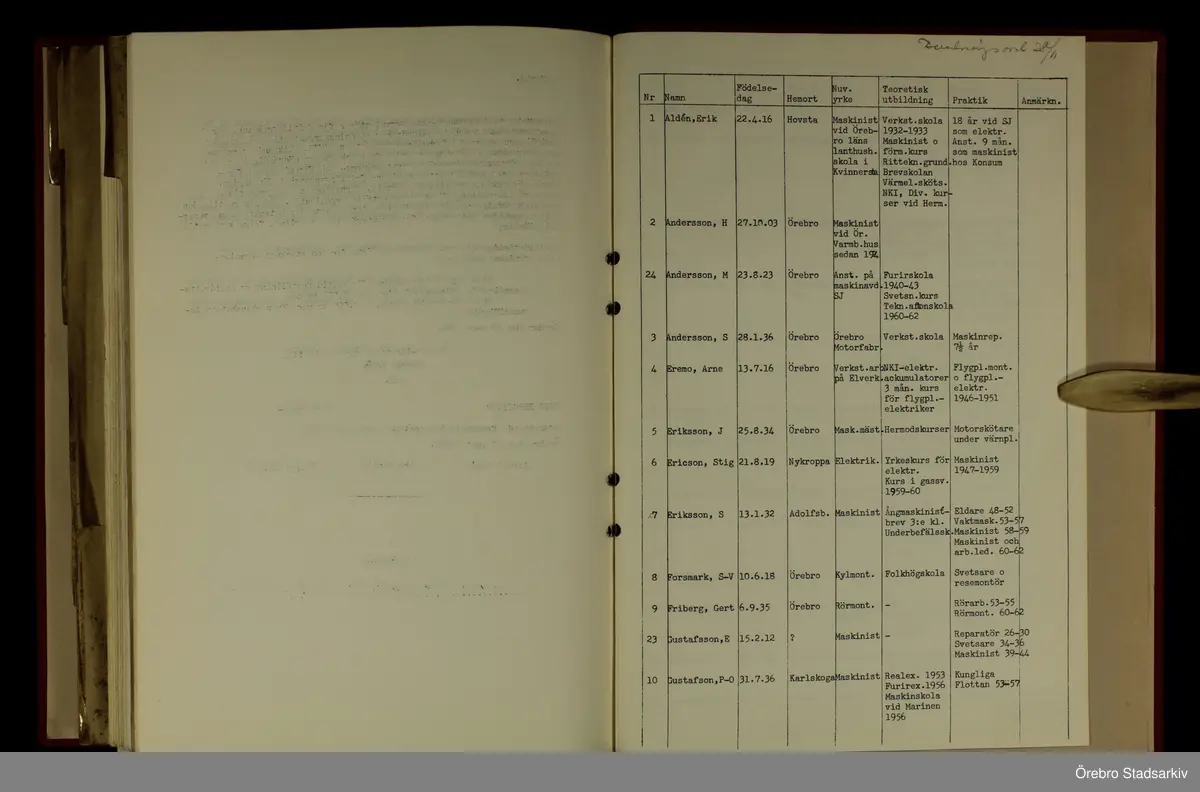 Nr Namn Födelse-dag Hemort Nuv. yrke Teoretisk utbildning Praktik Anmärkn.
1 Aldén,Erik 22.4.16 Hovsta Maskinist Verkst.skola 18 år vid SJ
vid Öreb- 1932-1933 som elektr.
ro läns Maskinist o Anst. 9 mån.
lanthush. förm.kurs som maskinist
skola i Rittekn.grund. hos Konsum
Kvinnersta Brevskolan
Värmel.sköts.
NKI, Div. kur-
ser vid Herm.
2 Andersson, H 27.10.03 Örebro Maskinist
vid Ör.
Varmb.hus
sedan
24 Andersson, M 23.8.23 Örebro Anst. på Furirskola
maskinavd. 1940-43
SJ Svetsn.kurs
Tekn.aftonskola
1960-62
3 Andersson, S 28.1.36 Örebro Örebro Verkst.skola Maskinrep.
Motorfabr. 7½ år
4 Eremo, Arne 13.7.16 Örebro Verkst.arb NKI-elektr. Flygpl.mont.
på Elverk. ackumulatorer o flygpl.-
3 mån. kurs elektr.
för flygpl.- 1946-1951
elektriker
5 Eriksson, J 25.8.34 Örebro Mask.mäst. Hermodskurser Motorskötare
under värnpl.
6 Ericson, Stig 21.8.19 Nykroppa Elektrik. Yrkeskurs för Maskinist
elektr. 1947-1959
Kurs i gassv.
1959-60
7 Eriksson, S 13.1.32 Adolfsb. Maskinist Ångmaskinist- Eldare 48-52
brev 3:e kl. Vaktmask.53-57
Underbefälssk. Maskinist 58-59
Maskinist och
arb.led. 60-62
8 Forsmark, S-V 10.6.18 Örebro Kylmont. Folkhögskola Svetsare o
resemontör
9 Friberg, Gert 6.9.35 Örebro Rörmont. - Rörarb.53-55
Rörmont. 60-62
23 Gustafsson,E 15.2.12 ? Maskinist - Reparatör 26-30
Svetsare 34-36
Maskinist 39-44
10 Gustafson,P-O 31.7.36 Karlskoga Maskinist Realex. 1953 Kungliga
Furirex.1956 Flottan 53-57
Maskinskola
vid Marinen
1956
Örebro Stadsarkiv